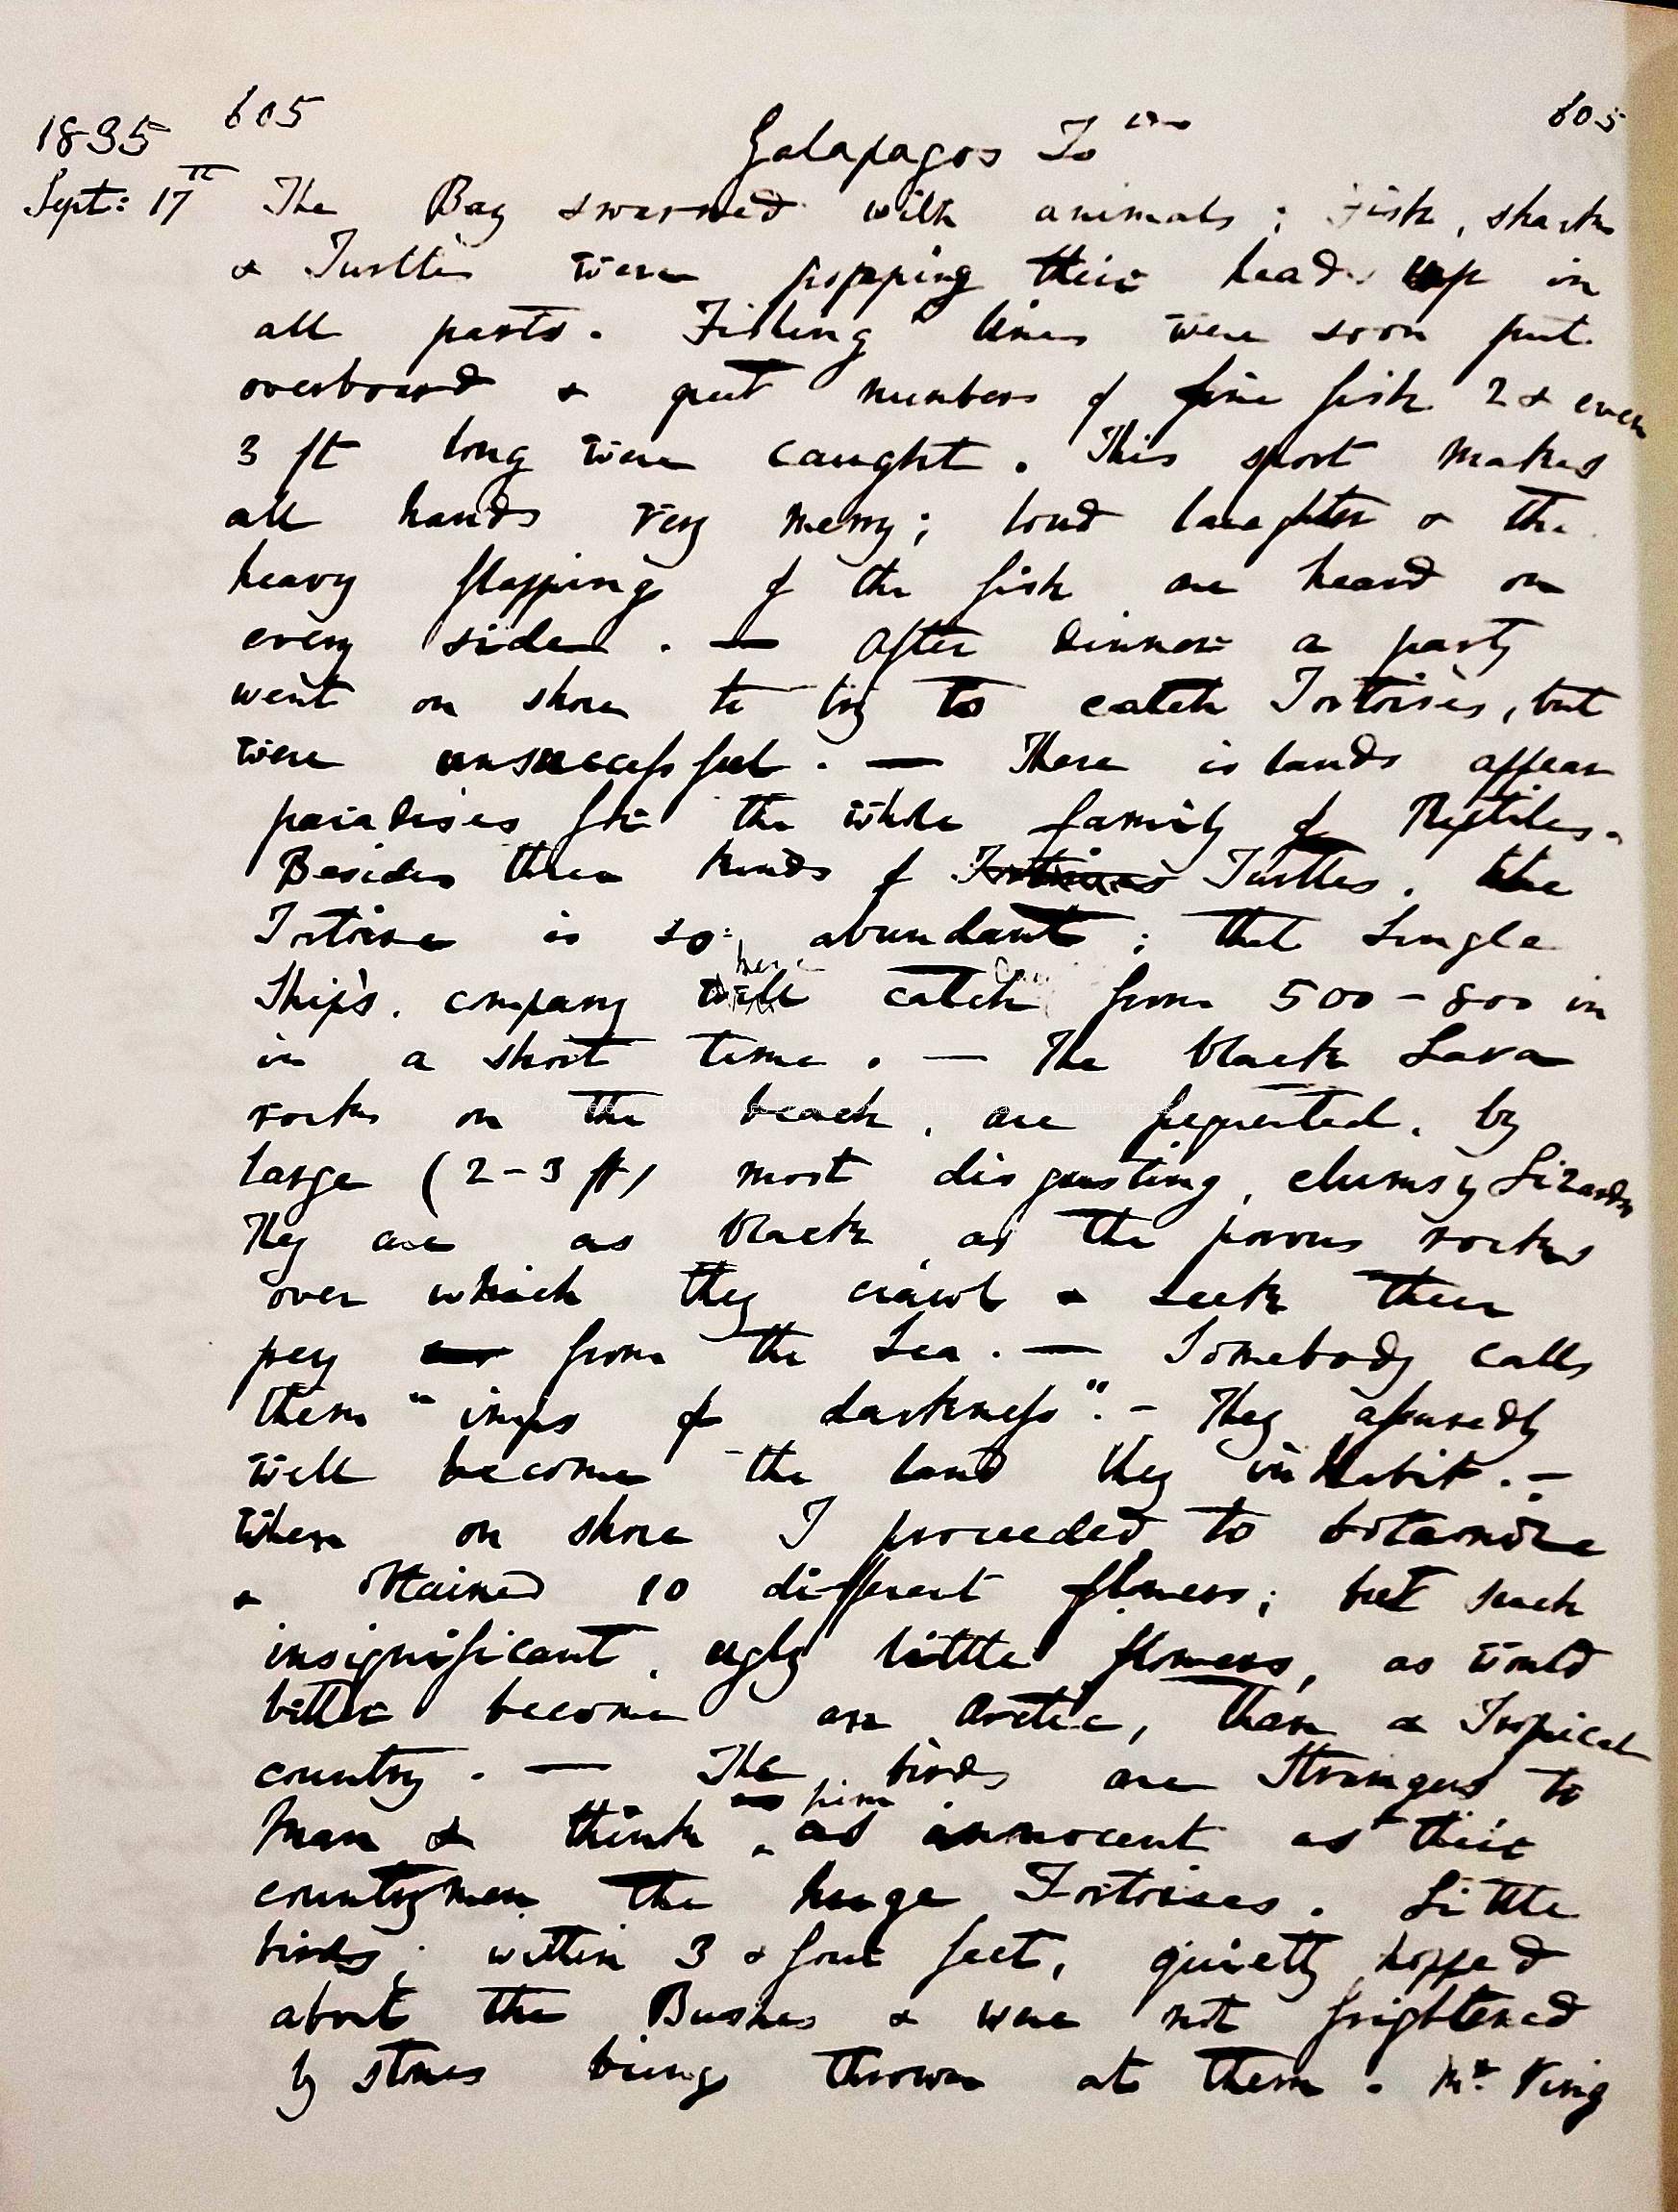 605 605
1835 Galapagos Is
Sept: 17th The Bay swarmed with animals; Fish, sharks
& Turtles were popping their heads up in
all parts. Fishing lines were soon put
overboard & great numbers of fine fish 2 & even
3 ft long were caught. This sport makes
all hands very merry; loud laughter & the
heavy flapping of the fish are heard on
every side. — After dinner a party
went on shore to try to catch Tortoises, but
were unsuccessful. — These islands appear
paradises for the whole family of Reptiles.
Besides three kinds of Tortoises Turtles, the
Tortoise is so abundant; that single
here
Ship's company will catch from 500-800 in
in a short time. — The black Lava
rocks on the beach, are frequented, by
large (2-3 ft) most disgusting, clumsy Lizards
They are as black as the porous rocks
over which they crawl & seek their
prey from the Sea. — Somebody calls
them "imps of darkness". — They assuredly
well become the land they inhabit. —
When on shore I proceeded to botanize
& obtained 10 different flowers; but such
insignificant, ugly little flowers, as would
better become an Arctic, than a Tropical
country. — The birds are Strangers to
him
Man & think as innocent as their
countrymen the huge Tortoises. Little
birds, within 3 & four feet, quietly hopped
about the Bushes & were not frightened
by stones being thrown at them. Mr King